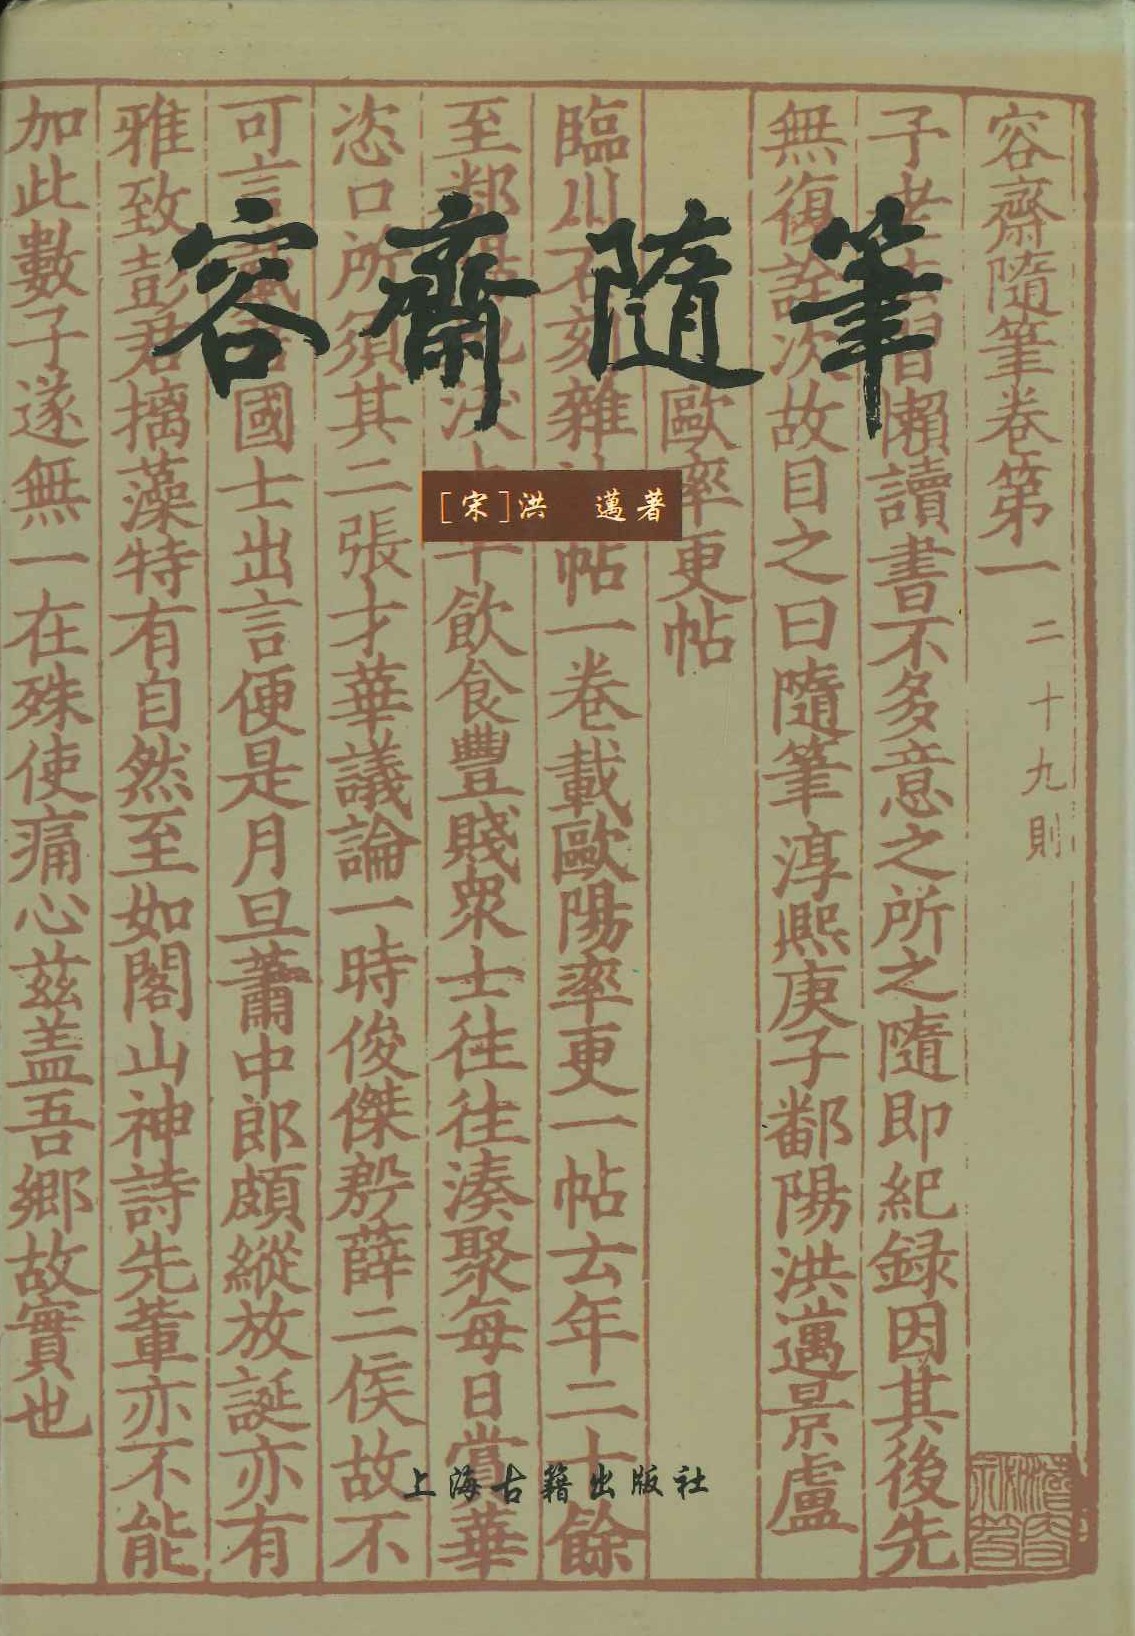 容齋隨筆
[宋]洪 邁著
上海古籍出版社
容齋隨筆卷第一 二十九則
予老去習懶讀書不多意之所之隨即紀録因其後先
無復詮次故目之曰隨筆淳熙庚子鄱陽洪邁景盧
歐率更帖
臨川石刻雜法帖一卷載歐陽率更一帖云年二十餘
至鄱陽地沃土平飲食豐賤衆士往往湊聚每日賞華
恣口所須其二張才華議論一時俊傑殷薛二侯故不
可言戴君國士出言便是月旦蕭中郎頗縱放誕亦有
雅致彭君摛藻特有自然至如閣山神詩先輩亦不能
加此數子遂無一在殊使痛心兹盖吾鄉故實也